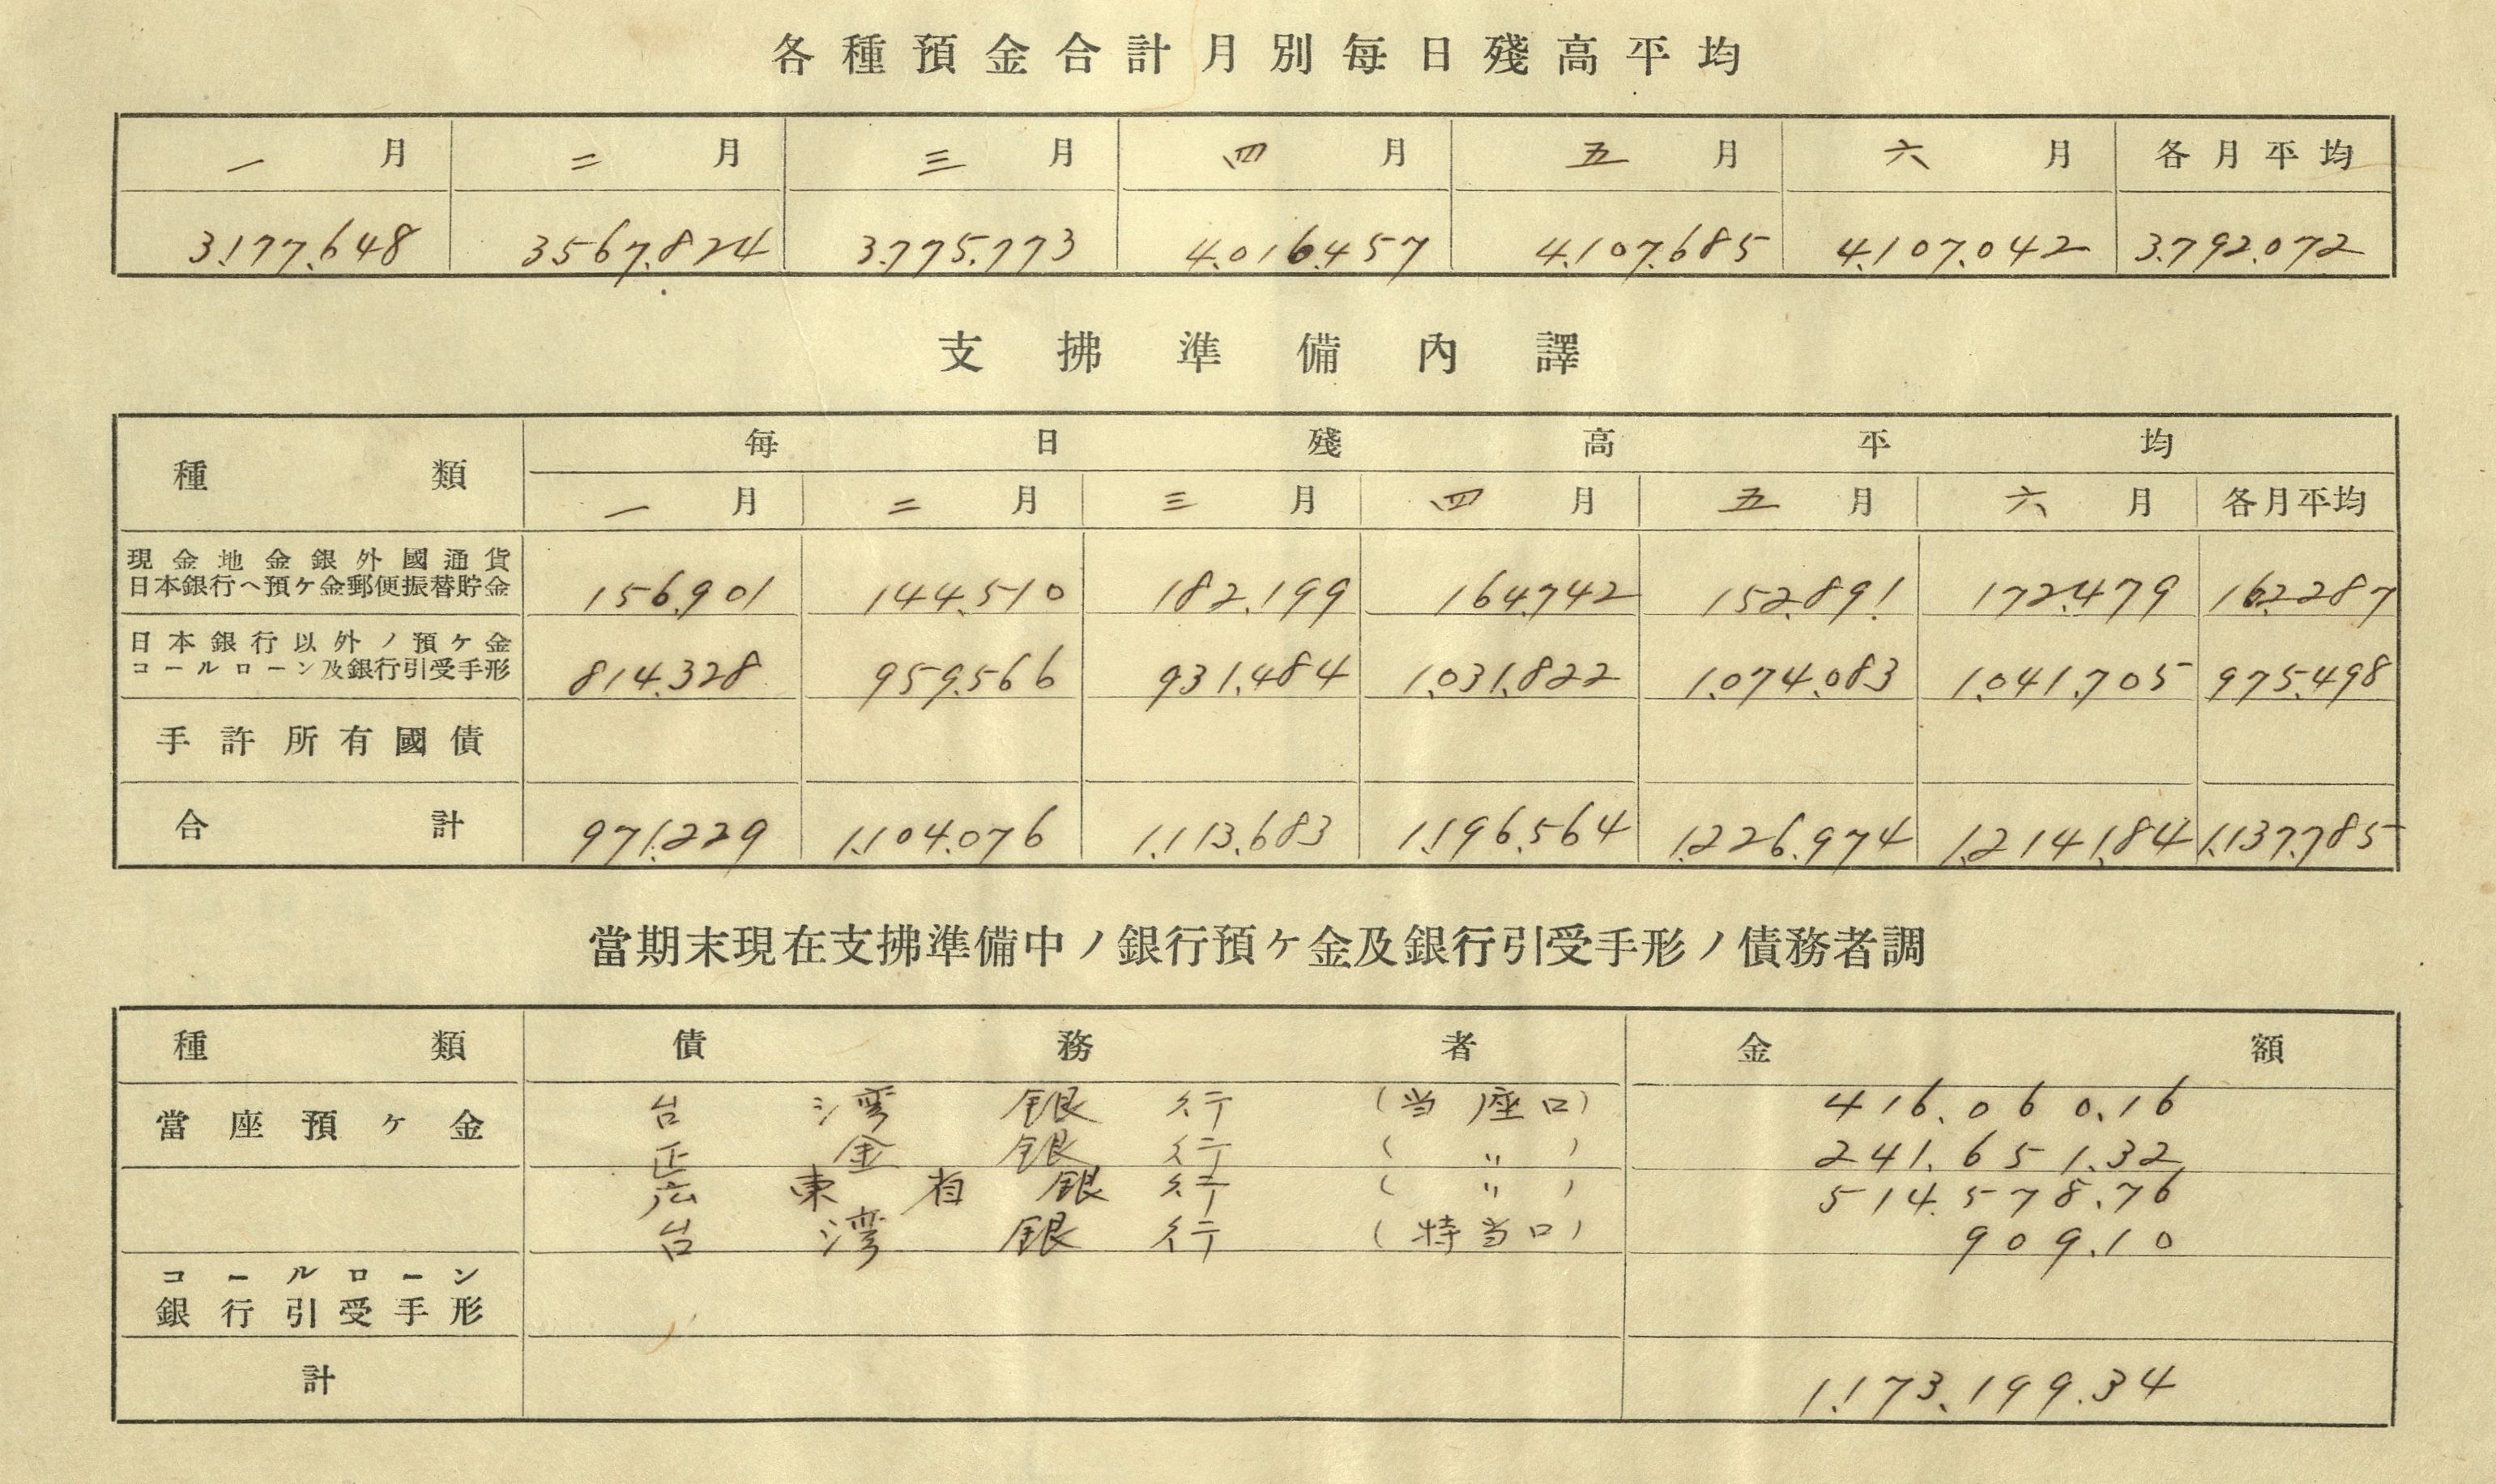 各種預金合計月別每日殘高平均
一月 二月 三月 四月 五月 六月 各月平均
3.177.648 3.567.824 3.775.773 4.016.457 4.107.685 4.107.042 3.792.072
支拂準備內譯
種類 每日殘高平均
一月 二月 三月 四月 五月 六月 各月平均
現金地金銀外國通貨
日本銀行ヘ預ケ金郵便振替貯金 156.901 144.510 182.199 164.742 152.891 172.479 162.287
日本銀行以外ノ預ケ金
コールローン及銀行引受手形 814.328 959.566 931.484 1.031.822 1.074.083 1.041.705 975.498
手許所有國債
合計 971.229 1.104.076 1.113.683 1.196.564 1.226.974 1.214.184 1.137.785
當期末現在支拂準備中ノ銀行預ケ金及銀行引受手形ノ債務者調
種類 債務者 金額
當座預ケ金 台湾銀行(当座口) 416.060.16
正金銀行(〃) 241.651.32
広東省銀行(〃) 514.578.76
台湾銀行(特当口) 909.10
コールローン
銀行引受手形
計 1.173.199.34